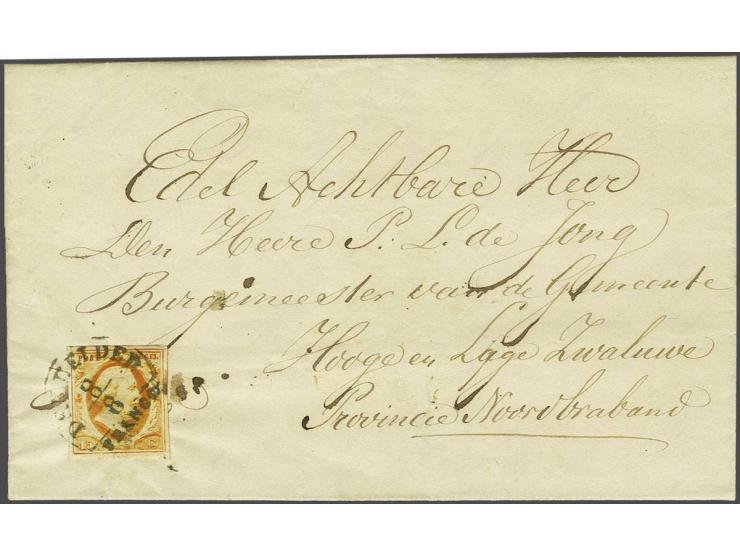 Edel Achtbare Heer
Den Heere P. L. de Jong
Burgemeester van de Gemeente
Hooge en Lage Zwaluwe
Provincie Noordbraband
DEN HELDER
8/8
FRANCO